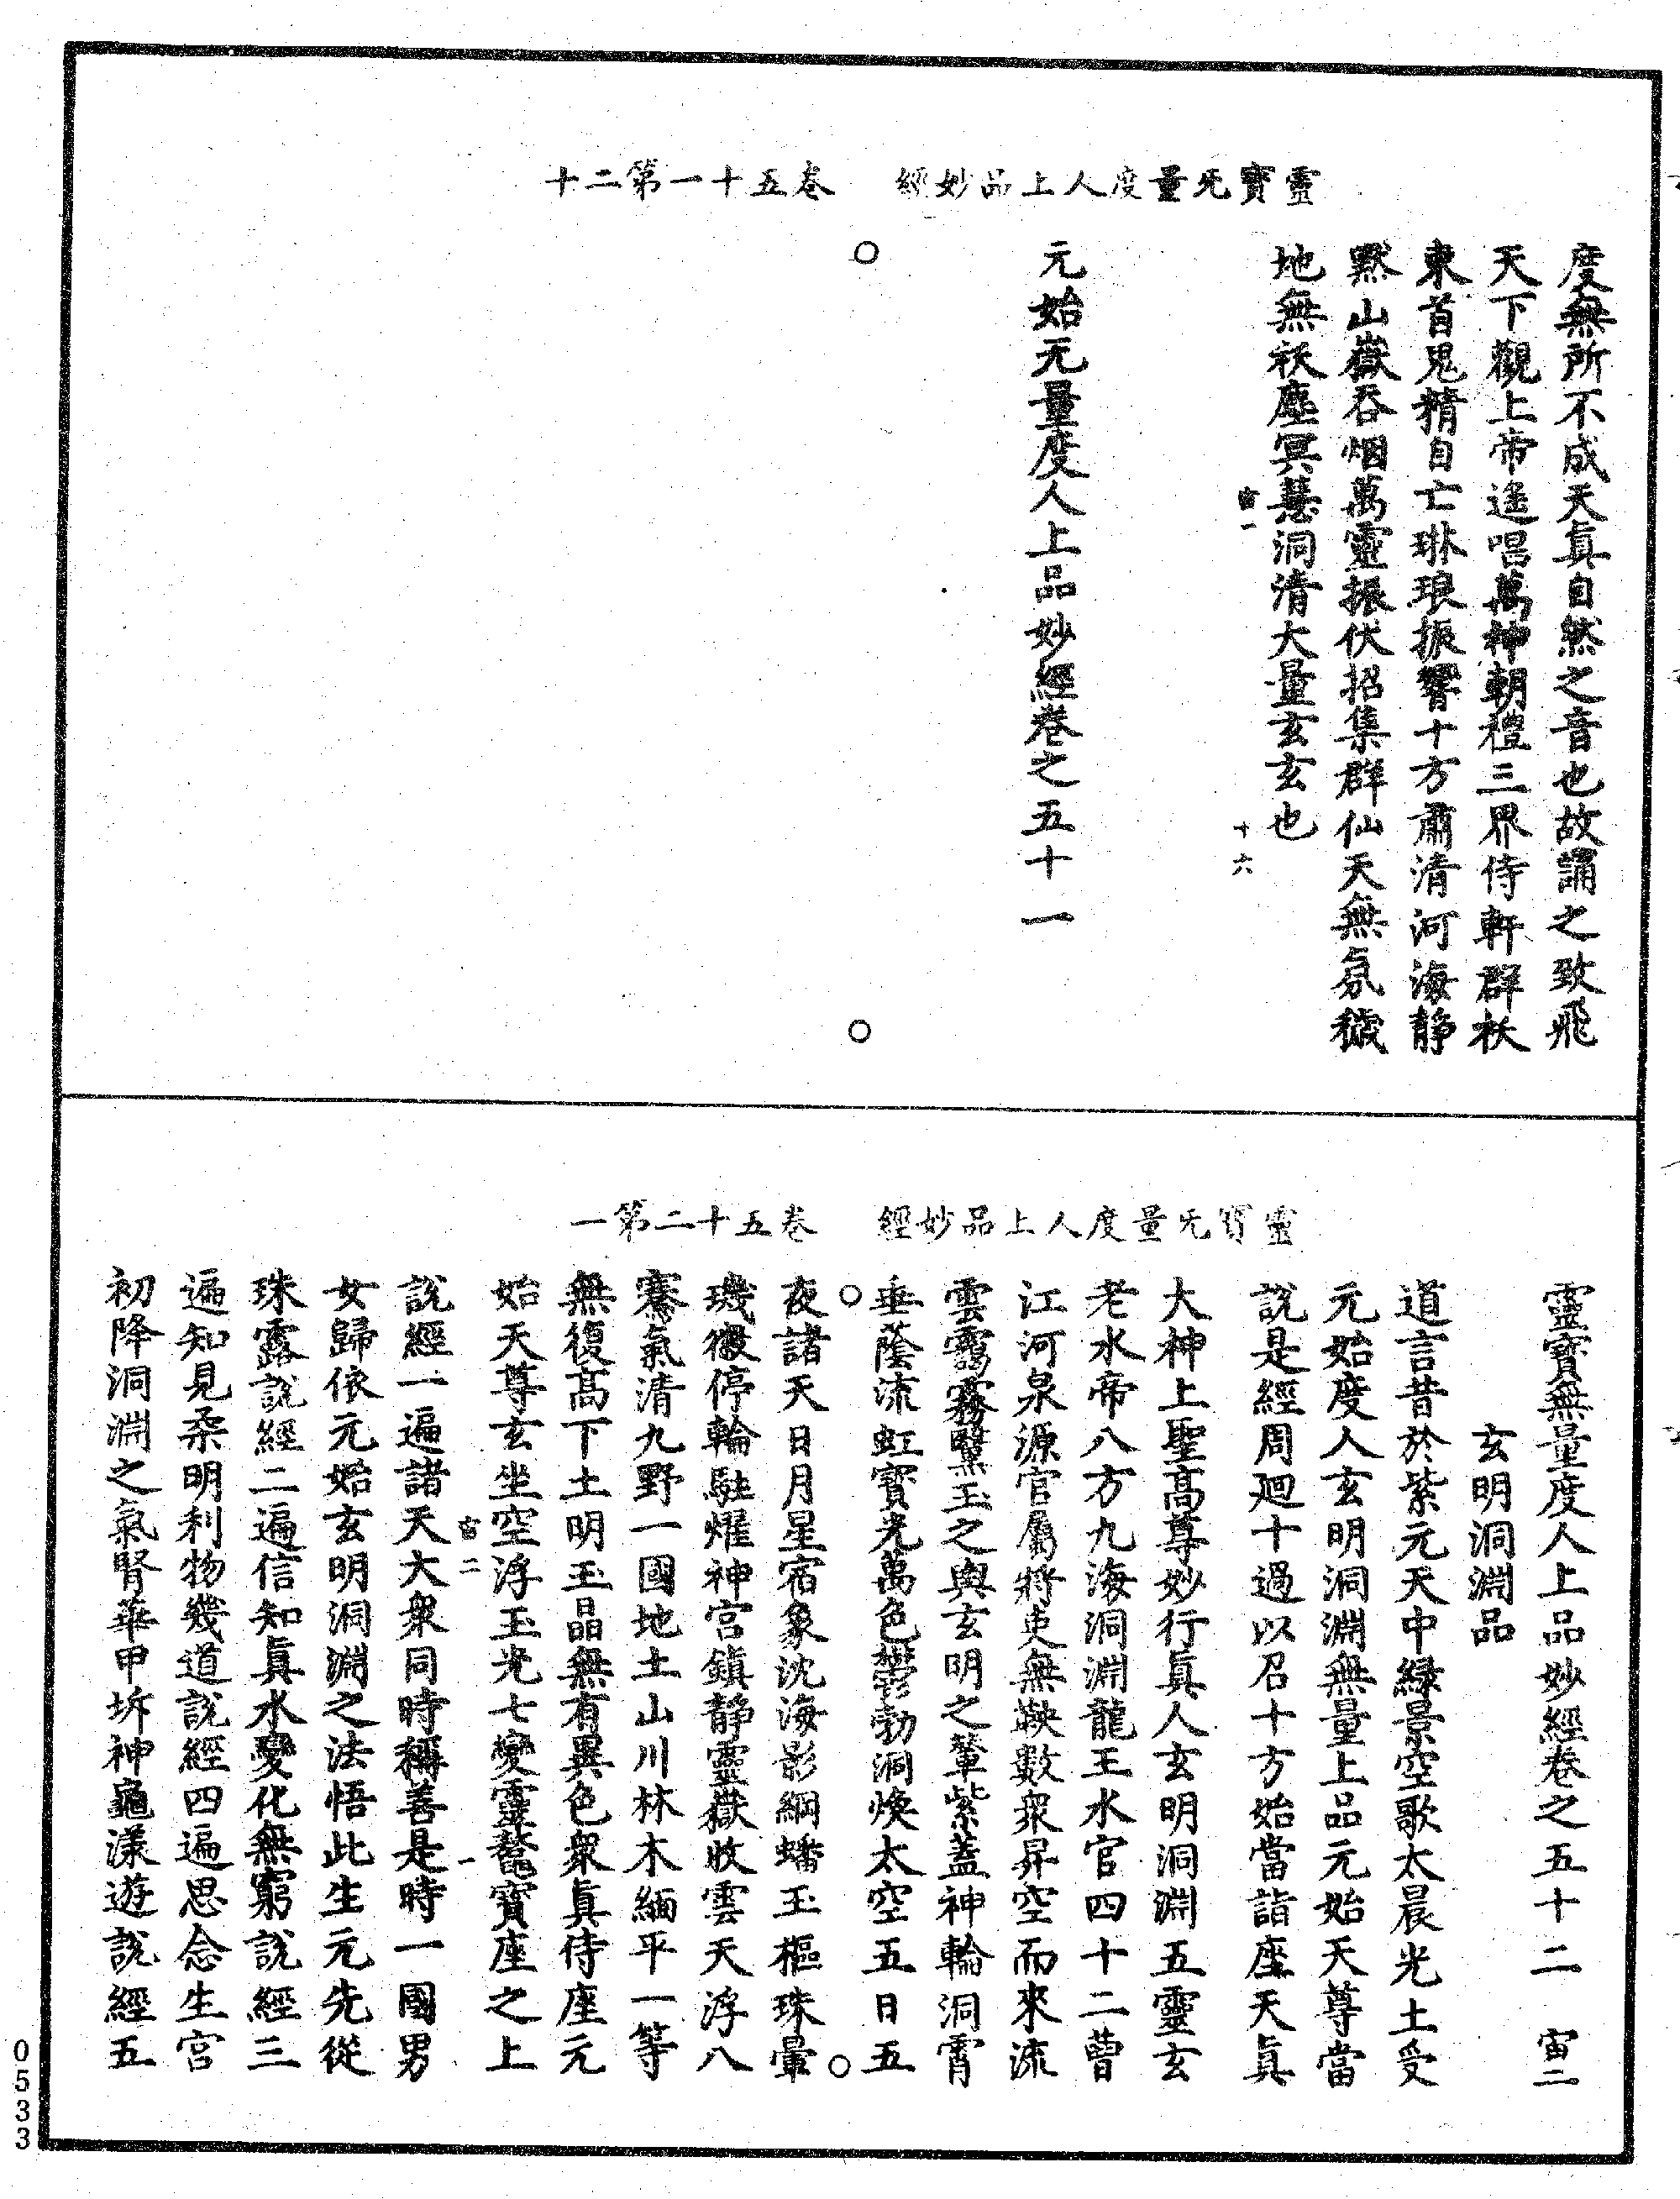 靈寶无量度人上品妙經　卷五十一第二十
度無所不成天眞自然之音也故誦之致飛
天下觀上帝遙唱萬神朝禮三界侍軒群祅
東首鬼精自亡琳琅振響十方肅清河海静
黙山嶽吞烟萬靈振伏招集群仙天無氛穢
地無祅塵冥慧洞清大量玄玄也
宙一　十六
元始无量度人上品妙經卷之五十一
靈寶无量度人上品妙經　卷五十二第一
靈寶無量度人上品妙經卷之五十二　宙二
玄明洞淵品
道言昔於紫元天中緑景空歌太晨光土受
元始度人玄明洞淵無量上品元始天尊當
說是經周廻十過以召十方始當詣座天眞
大神上聖髙尊妙行眞人玄明洞淵五靈玄
老水帝八方九海洞淵龍王水官四十二曹
江河泉源官屬將吏無鞅數衆昇空而來流
雲靄霧黳玉之輿玄明之輦紫蓋神輪洞霄
垂蔭流虹寳光萬色鬱勃洞煥太空五日五
夜諸天日月星宿象沈海影綱蟠玉樞珠暈
璣徽停輪駐燿神宮鎮静靈嶽收雲天浮八
騫氣清九野一國地土山川林木緬平一等
無復髙下土明玉晶無有異色衆眞侍座元
始天尊玄坐空浮玉光七變靈鼇寳座之上
宙二　一
說經一遍諸天大衆同時稱善是時一國男
女歸依元始玄明洞淵之法悟此生元先從
珠露說經二遍信知眞水變化無窮說經三
遍知見柔明利物幾道說經四遍思念生宮
初降洞淵之氣腎華甲坼神龜漾遊說經五
0533